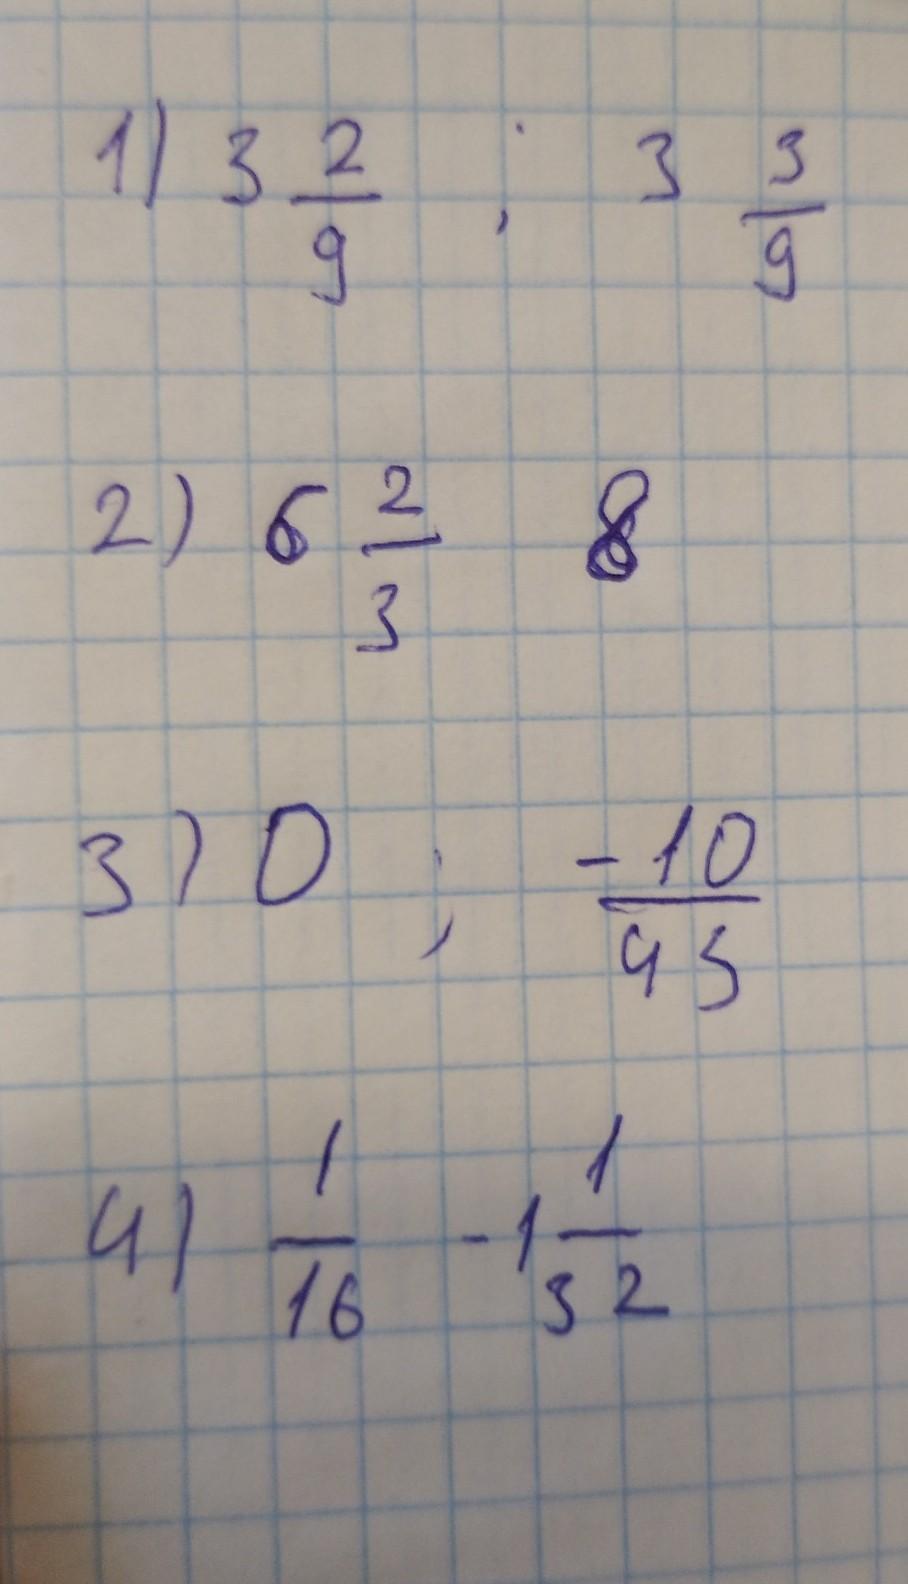 1) 3 2/9 ; 3 3/9
2) 6 2/3 8
3) 0 ; -10/45
4) 1/16 -1 1/32